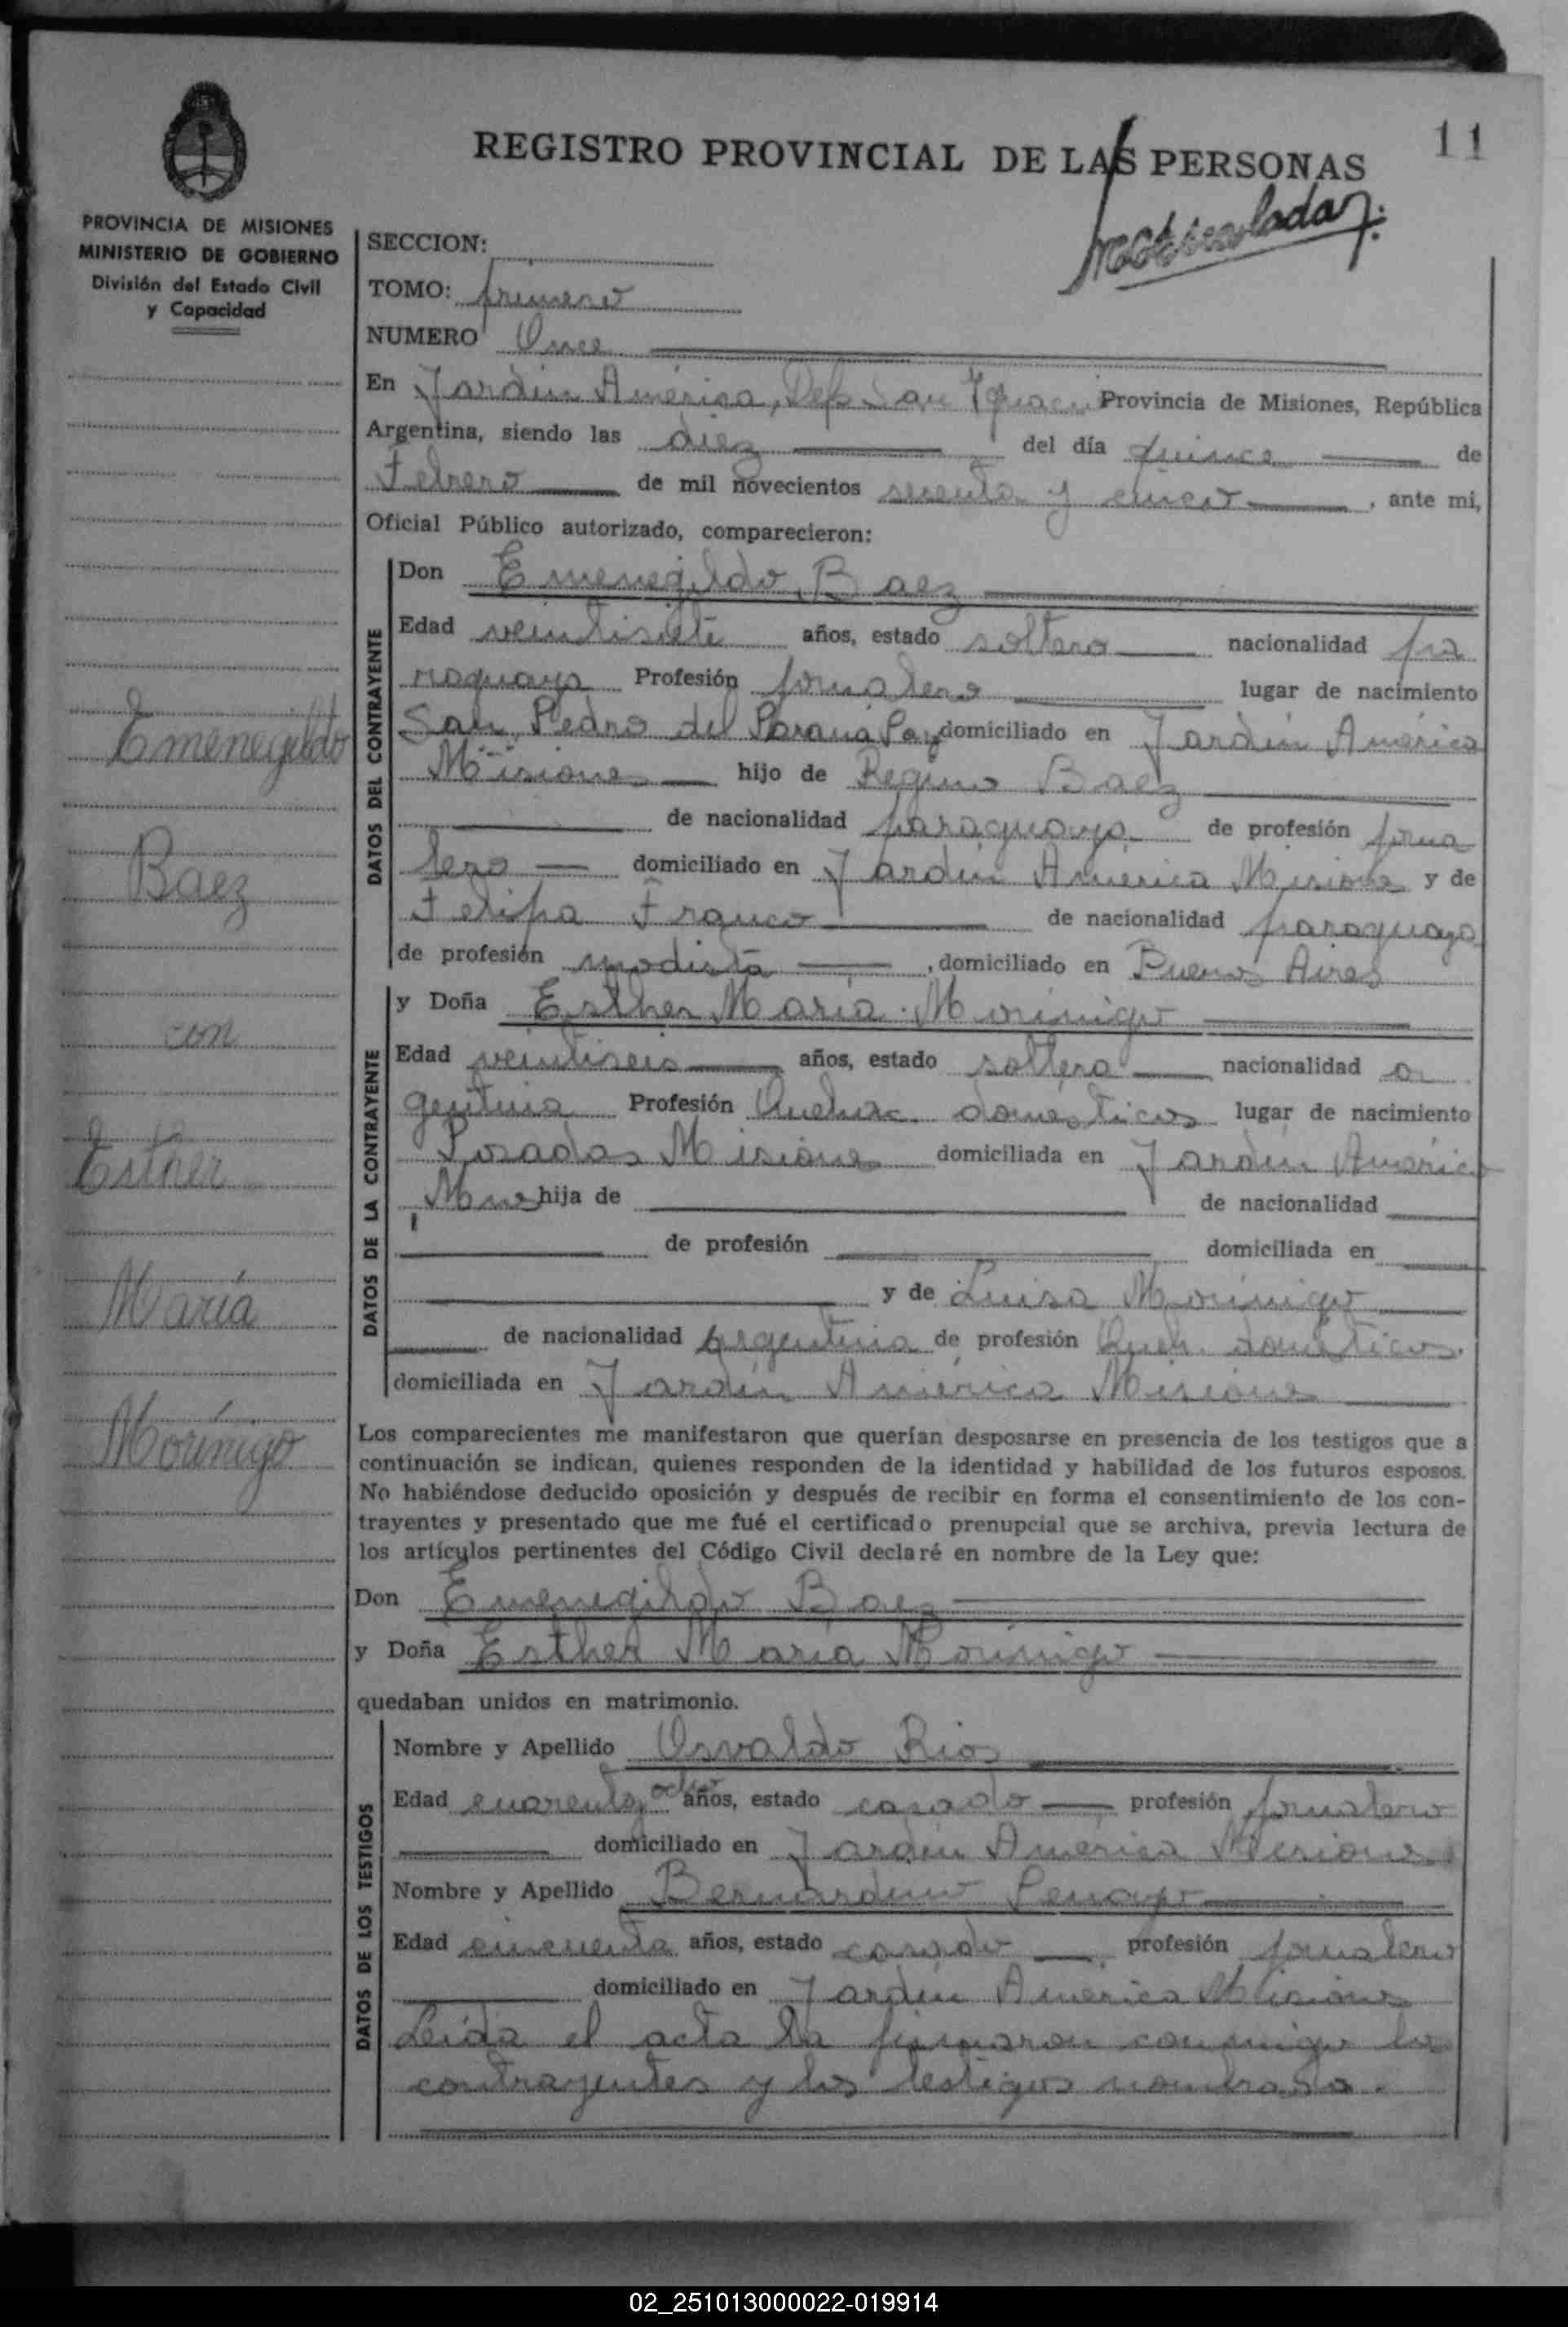 11
REGISTRO PROVINCIAL DE LAS PERSONAS
PROVINCIA DE MISIONES
MINISTERIO DE GOBIERNO
División del Estado Civil
y Capacidad
SECCION:
TOMO: primero
NUMERO Once
En Jardín América, Dep San Ignacio Provincia de Misiones, República
Argentina, siendo las diez del día quince de
Febrero de mil novecientos sesenta y cinco, ante mi,
Oficial Público autorizado, comparecieron:
DATOS DEL CONTRAYENTE
Don Emenegildo Baez
Edad veintisiete años, estado soltero nacionalidad pa
raguaya Profesión jornalero lugar de nacimiento
San Pedro del Paraná Pay domiciliado en Jardín América
Misiones hijo de Regino Baez
de nacionalidad paraguaya de profesión jorna
lero domiciliado en Jardín America Misiones y de
Felipa Franco de nacionalidad paraguaya
de profesión modista, domiciliado en Buenos Aires
Emenegildo
Baez
con
Esther
María
Morínigo
DATOS DE LA CONTRAYENTE
y Doña Esther María Morinigo
Edad veintiseis años, estado soltera nacionalidad ar
gentina Profesión Quehac. domésticos lugar de nacimiento
Posadas Misiones domiciliada en Jardín América
Mnes hija de de nacionalidad
de profesión domiciliada en
y de Luisa Morinigo
de nacionalidad Argentina de profesión Queh. domésticos.
domiciliada en Jardín América Misiones
Los comparecientes me manifestaron que querían desposarse en presencia de los testigos que a
continuación se indican, quienes responden de la identidad y habilidad de los futuros esposos.
No habiéndose deducido oposición y después de recibir en forma el consentimiento de los con-
trayentes y presentado que me fué el certificado prenupcial que se archiva, previa lectura de
los artículos pertinentes del Código Civil declaré en nombre de la Ley que:
Don Emenegildo Baez
y Doña Esther María Morinigo
quedaban unidos en matrimonio.
DATOS DE LOS TESTIGOS
Nombre y Apellido Osvaldo Rios
Edad cuarenta y ocho años, estado casado profesión jornalero
domiciliado en Jardín América Misiones
Nombre y Apellido Bernardino Penayo
Edad cincuenta años, estado casado profesión jornalero
domiciliado en Jardín América Misiones
Leida el acta la firmaron conmigo los
contrayentes y los testigos nombrados.
02_251013000022-019914